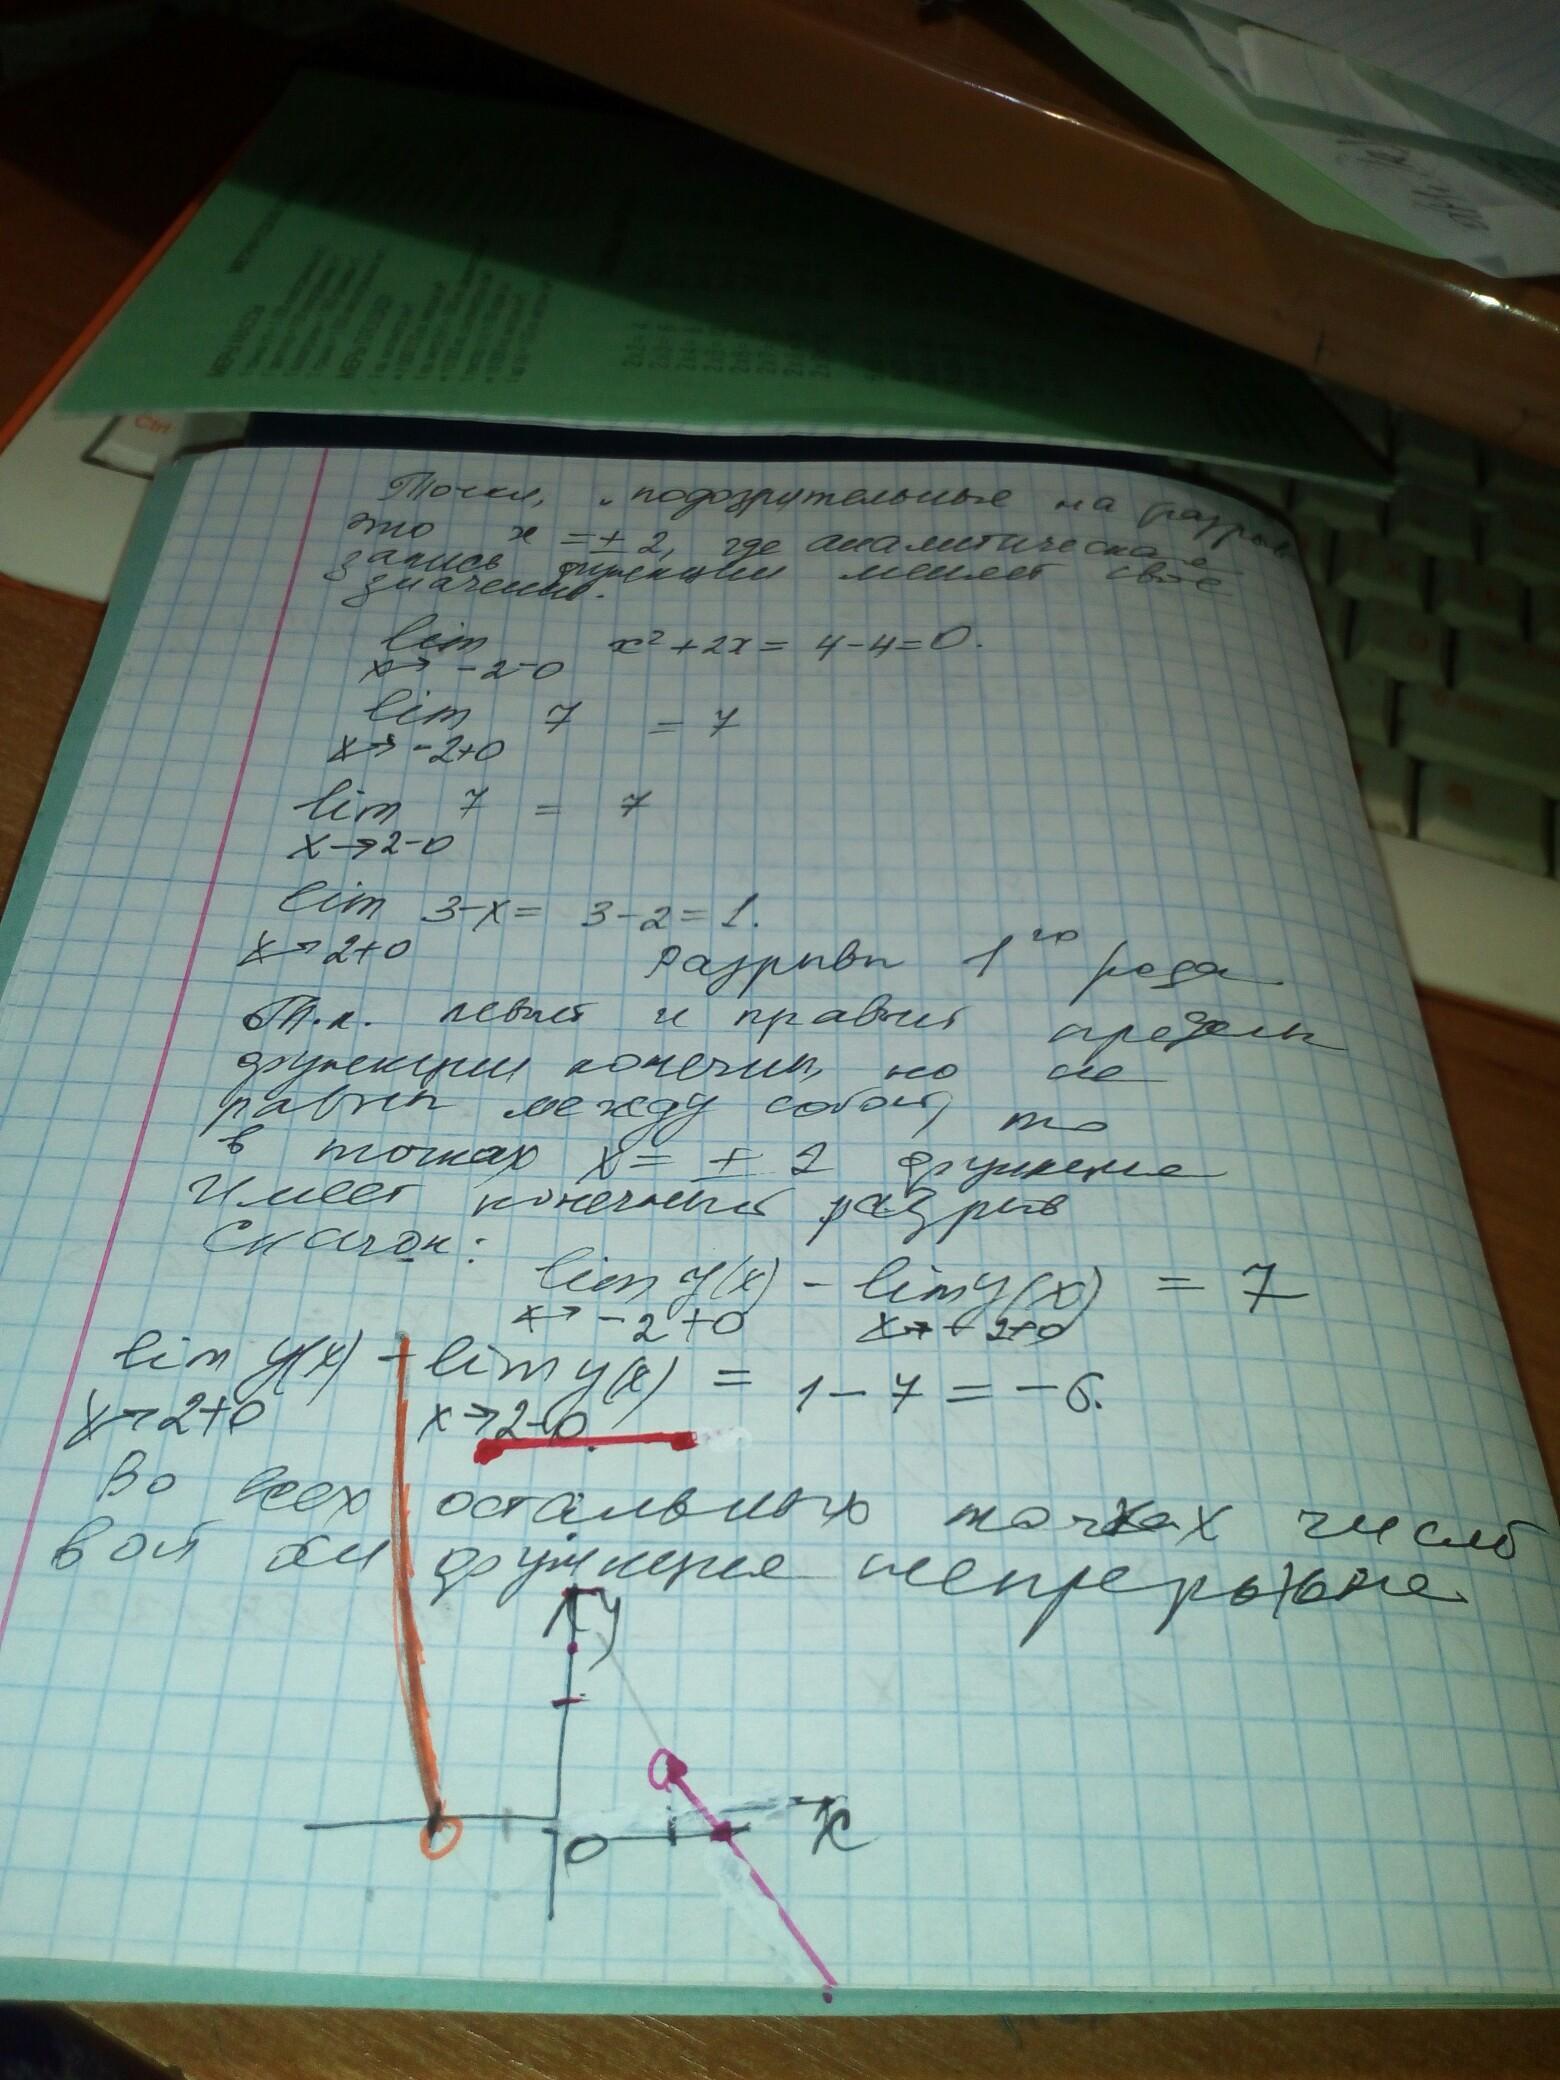 Точки, "подозрительные на разрыв
это x = ± 2, где аналитическая
запись функции меняет своё
значение.
lim x² + 2x = 4 - 4 = 0.
x → -2-0
lim 7 = 7
x → -2+0
lim 7 = 7
x → 2-0
lim 3-x = 3-2 = 1.
x → 2+0
Разрывы 1го рода
Т.к. левый и правый пределы
функции конечны, но не
равны между собой, то
в точках x = ± 2 функция
имеет конечный разрыв
Скачок:
lim y(x) - lim y(x) = 7
x → -2+0
lim y(x) - lim y(x) = 1 - 7 = -6.
x → 2+0 x → 2-0
Во всех остальных точках число
вой оси функция непрерывна
y
0 x
Ctrl